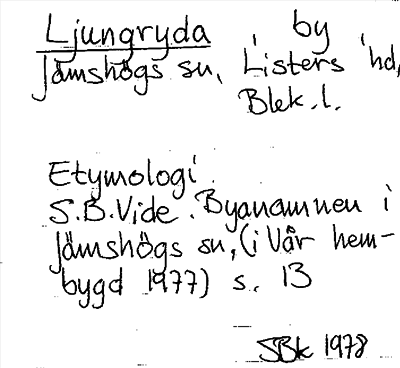 Ljungryda by
Jämshögs sn, Listers hd,
Blek. l.
Etymologi
S.B.Vide. Byanamnen i
Jämshögs sn, (i Vår hem-
bygd 1977) s. 13
SBk 1978